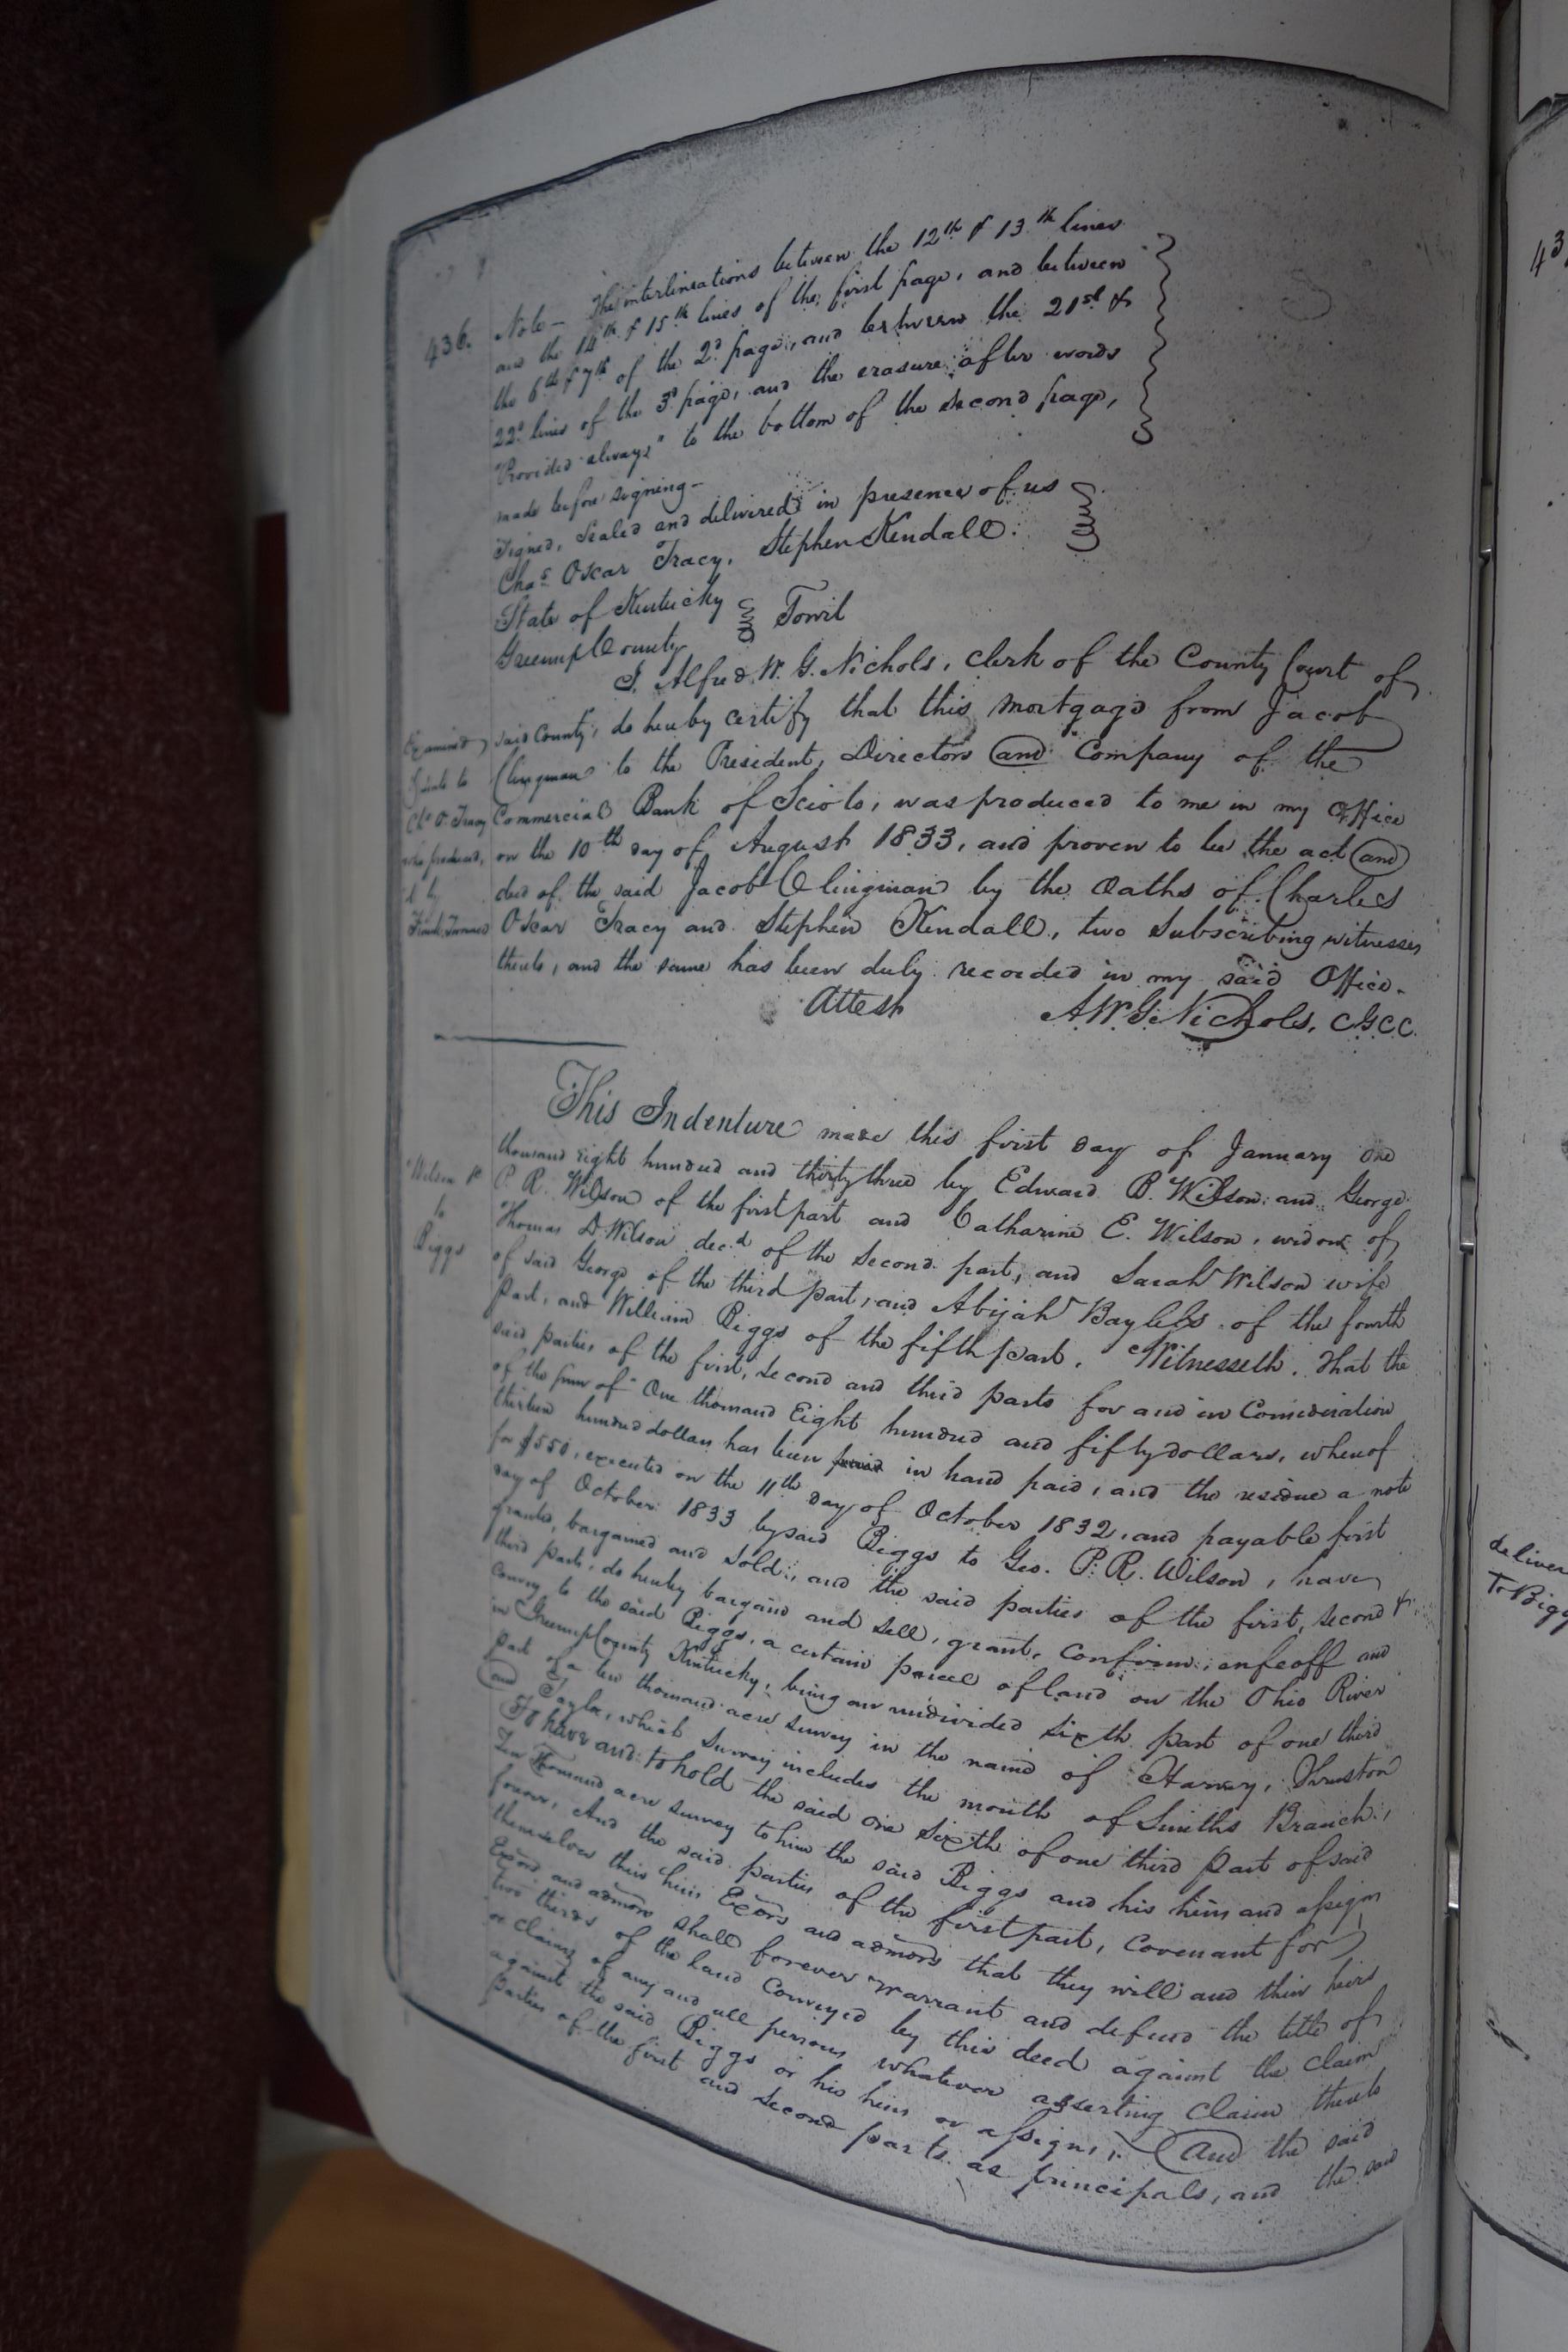 436.
Note — The interlineations between the 12th & 13th lines
and the 14th & 15th lines of the first page, and between
the 6th & 7th of the 2d page, and between the 21st &
22d lines of the 3d page, and the erasure after words
"Provided always" to the bottom of the second page,
made before signing —
Signed, Sealed and delivered in presence of us
Chas Oscar Tracy, Stephen Kendall.
State of Kentucky
Greenup County
Towit
I, Alfred W. G. Nichols, Clerk of the County Court of
said County, do hereby certify that this mortgage from Jacob
Clingman to the President, Directors and Company of the
Commercial Bank of Scioto, was produced to me in my Office
on the 10th day of August 1833, and proven to be the act and
deed of the said Jacob Clingman by the Oaths of Charles
Oscar Tracy and Stephen Kendall, two Subscribing witnesses
thereto, and the same has been duly recorded in my said Office.
Attest
A. W. G. Nichols, C G C C.
Examined
to
O. Tracy
by
This Indenture made this first day of January one
thousand eight hundred and thirty three by Edward B. Wilson and George
P. R. Wilson of the first part and Catharine E. Wilson, widow of
Thomas D. Wilson decd of the Second part, and Sarah Wilson wife
of said George of the third part, and Abijah Bayless of the fourth
Part, and William Biggs of the fifth part. Witnesseth. That the
said parties of the first, second and third parts for and in Consideration
of the sum of One thousand Eight hundred and fifty dollars, whereof
thirteen hundred dollars has been paid in hand paid, and the residue a note
for $550, executed on the 11th day of October 1832, and payable first
day of October 1833 by said Biggs to Geo. P. R. Wilson, have
granted, bargained and sold, and the said parties of the first, second &
third parts, do hereby bargain and sell, grant, confirm, enfeoff and
convey to the said Biggs, a certain parcel of land on the Ohio River
in Greenup County Kentucky, being an undivided sixth part of one third
part of a ten thousand acre survey in the name of Harvey, Thruston
and Taylor, which Survey includes the mouth of Smiths Branch,
To have and to hold the said one sixth of one third part of said
Ten Thousand acre survey to him the said Biggs and his heirs and assigns
forever, And the said parties of the first part, covenant for
themselves their heirs Exors and admors that they will and their heirs
Exors and admors shall forever warrant and defend the title of
two thirds of the land Conveyed by this deed against the Claim
or claims of any and all persons whatever asserting Claim thereto
against the said Biggs or his heirs or assigns, And the said
Parties of the first and second parts as principals, and the said
Wilson
to
Biggs
43
deliver
To Bigg